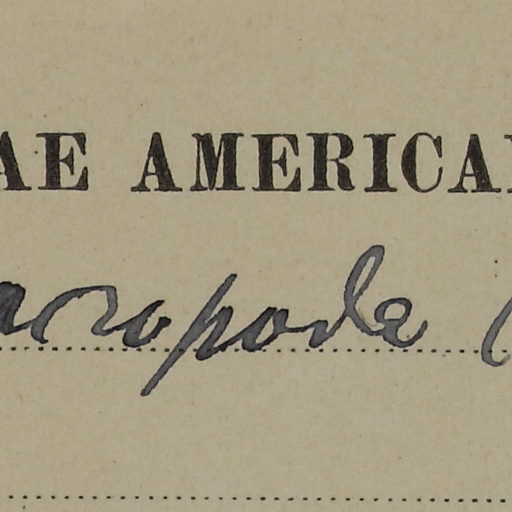 AE AMERICA
acropoda